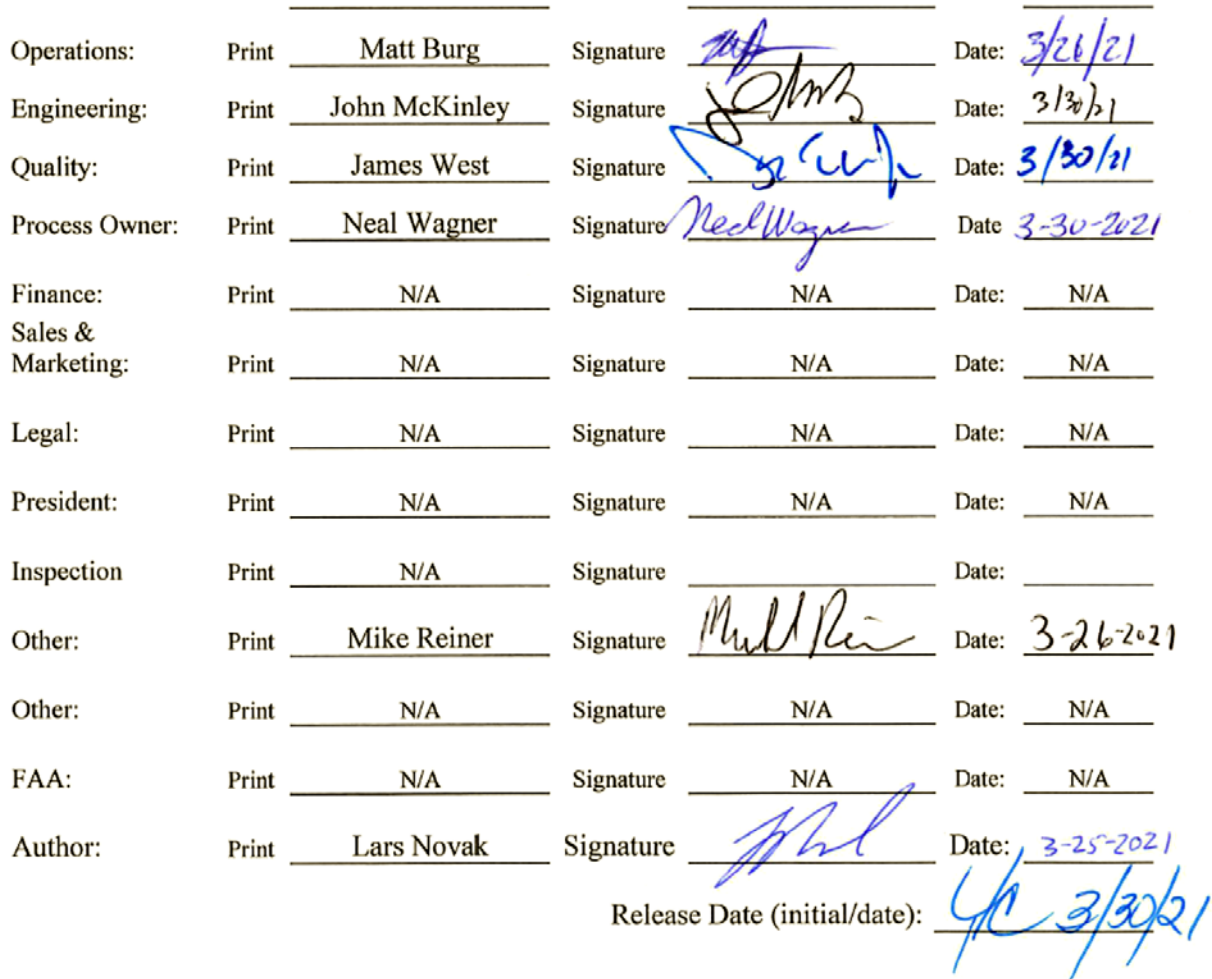 Operations: Print Matt Burg Signature Date: 3/26/21
Engineering: Print John McKinley Signature Date: 3/30/21
Quality: Print James West Signature Date: 3/30/21
Process Owner: Print Neal Wagner Signature Neal Wagner Date 3-30-2021
Finance: Print N/A Signature N/A Date: N/A
Sales &
Marketing: Print N/A Signature N/A Date: N/A
Legal: Print N/A Signature N/A Date: N/A
President: Print N/A Signature N/A Date: N/A
Inspection Print N/A Signature Date:
Other: Print Mike Reiner Signature Date: 3-26-2021
Other: Print N/A Signature N/A Date: N/A
FAA: Print N/A Signature N/A Date: N/A
Author: Print Lars Novak Signature Date: 3-25-2021
Release Date (initial/date): 3/30/21